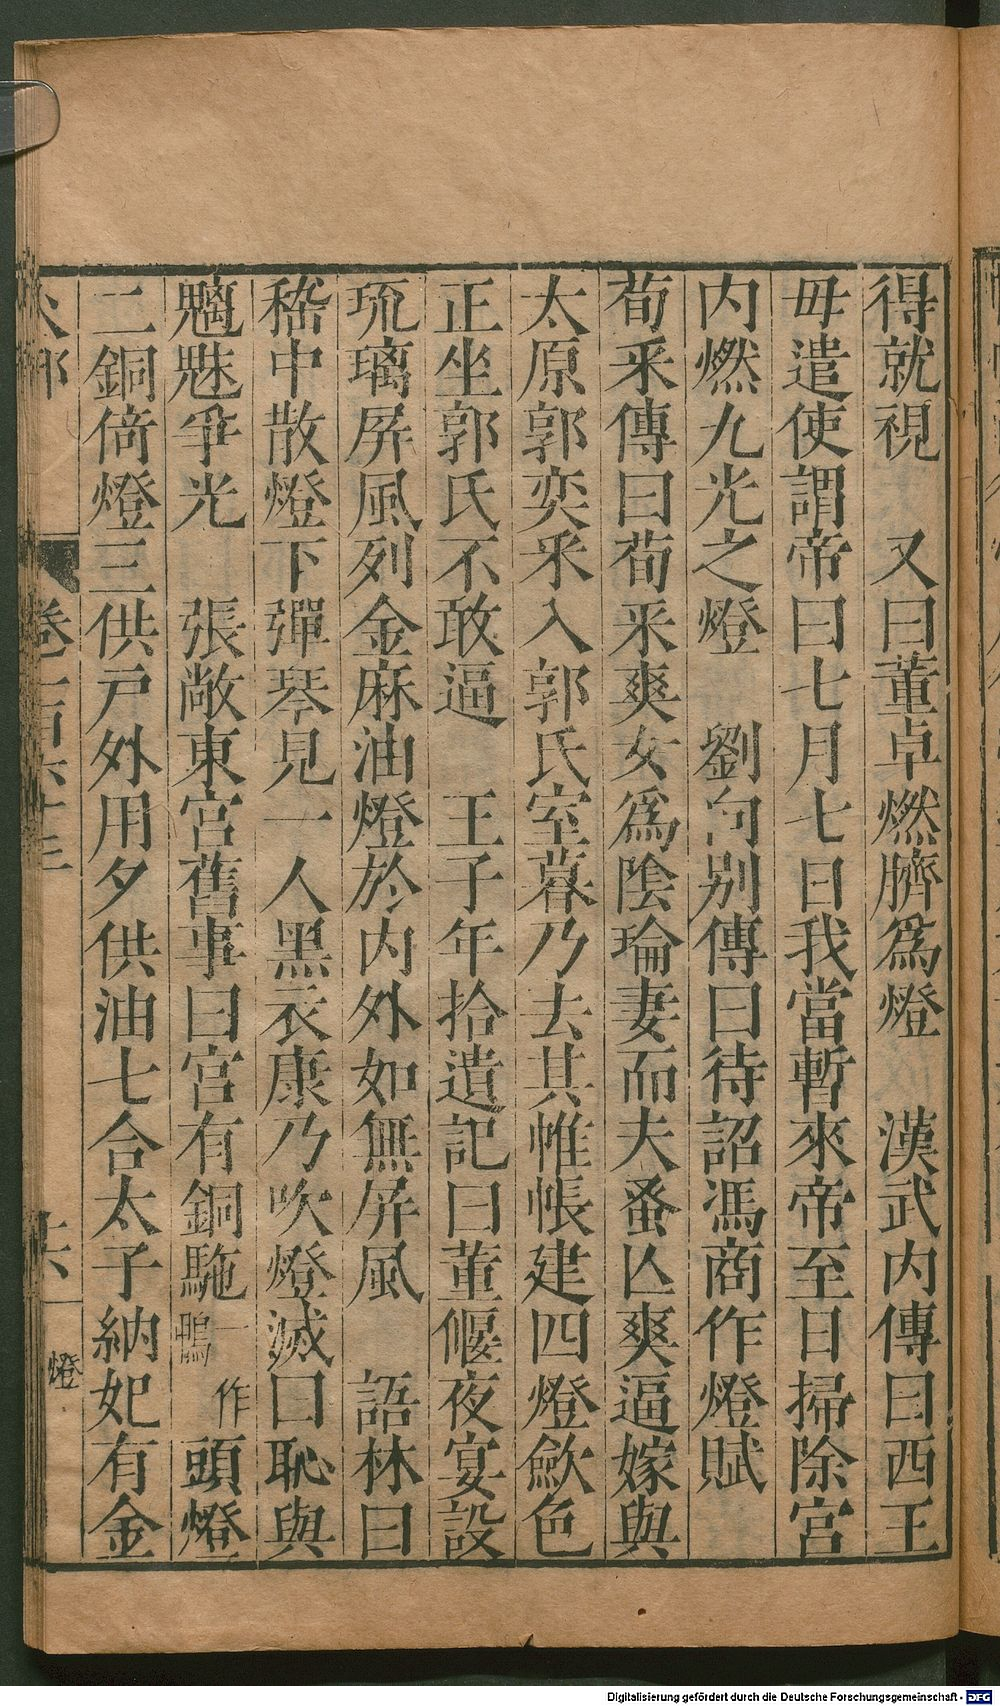 得就視　又曰董卓燃臍爲燈　漢武内傳曰西王
毋遣使謂帝曰七月七日我當暫來帝至日掃除宮
内燃九光之燈　劉向別傳曰待詔馮商作燈賦
荀釆傳曰荀釆爽女爲陰瑜妻而夫蚤亾爽逼嫁與
太原郭奕釆入郭氏室暮乃去其帷帳建四燈斂色
正坐郭氏不敢逼　王子年拾遺記曰董偃夜宴設
琉璃屏風列金麻油燈於内外如無屏風　語林曰
嵇中散燈下彈琴見一人黑衣康乃吹燈滅曰恥與
魑魅爭光　張敞東宮舊事曰宮有銅駞一作鴨頭燈
二銅倚燈三供戸外用夕供油七合太子納妃有金
火部
卷一百六十三
十六
燈
Digitalisierung gefördert durch die Deutsche Forschungsgemeinschaft - DFG